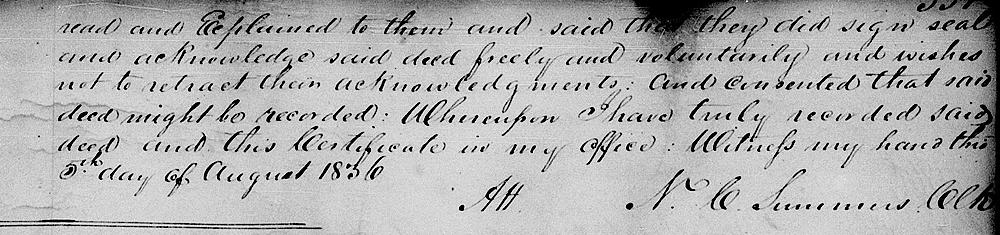 read and Explained to them and said that they did sign seal
and acknowledge said deed freely and voluntarily and wishes
not to retract their acknowledgments; and consented that said
deed might be recorded: Whereupon I have truly recorded said
deed and this Certificate in my office: Witness my hand this
5th day of August 1836
Att N. C. Summers Clk